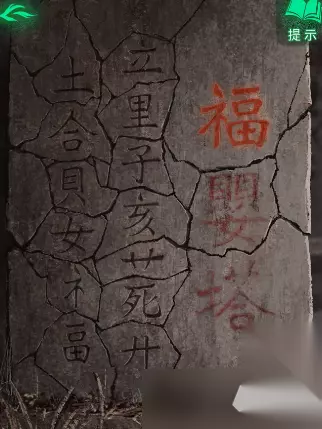 提示
福婴塔
立里子亥艹死廾
土合貝女礻畐